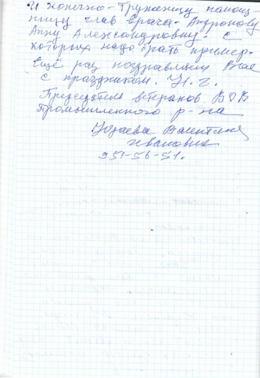 И конечно - Труженицу помощ-
ницу глав врача - Андронову
Анну Александровну. С
которых надо брать пример.
Ещё раз поздравляем Вас
с праздником. Н. г.
Председатель ветеранов ВОВ
Промышленного р-на
Валентина
Ивановна
951-56-51.